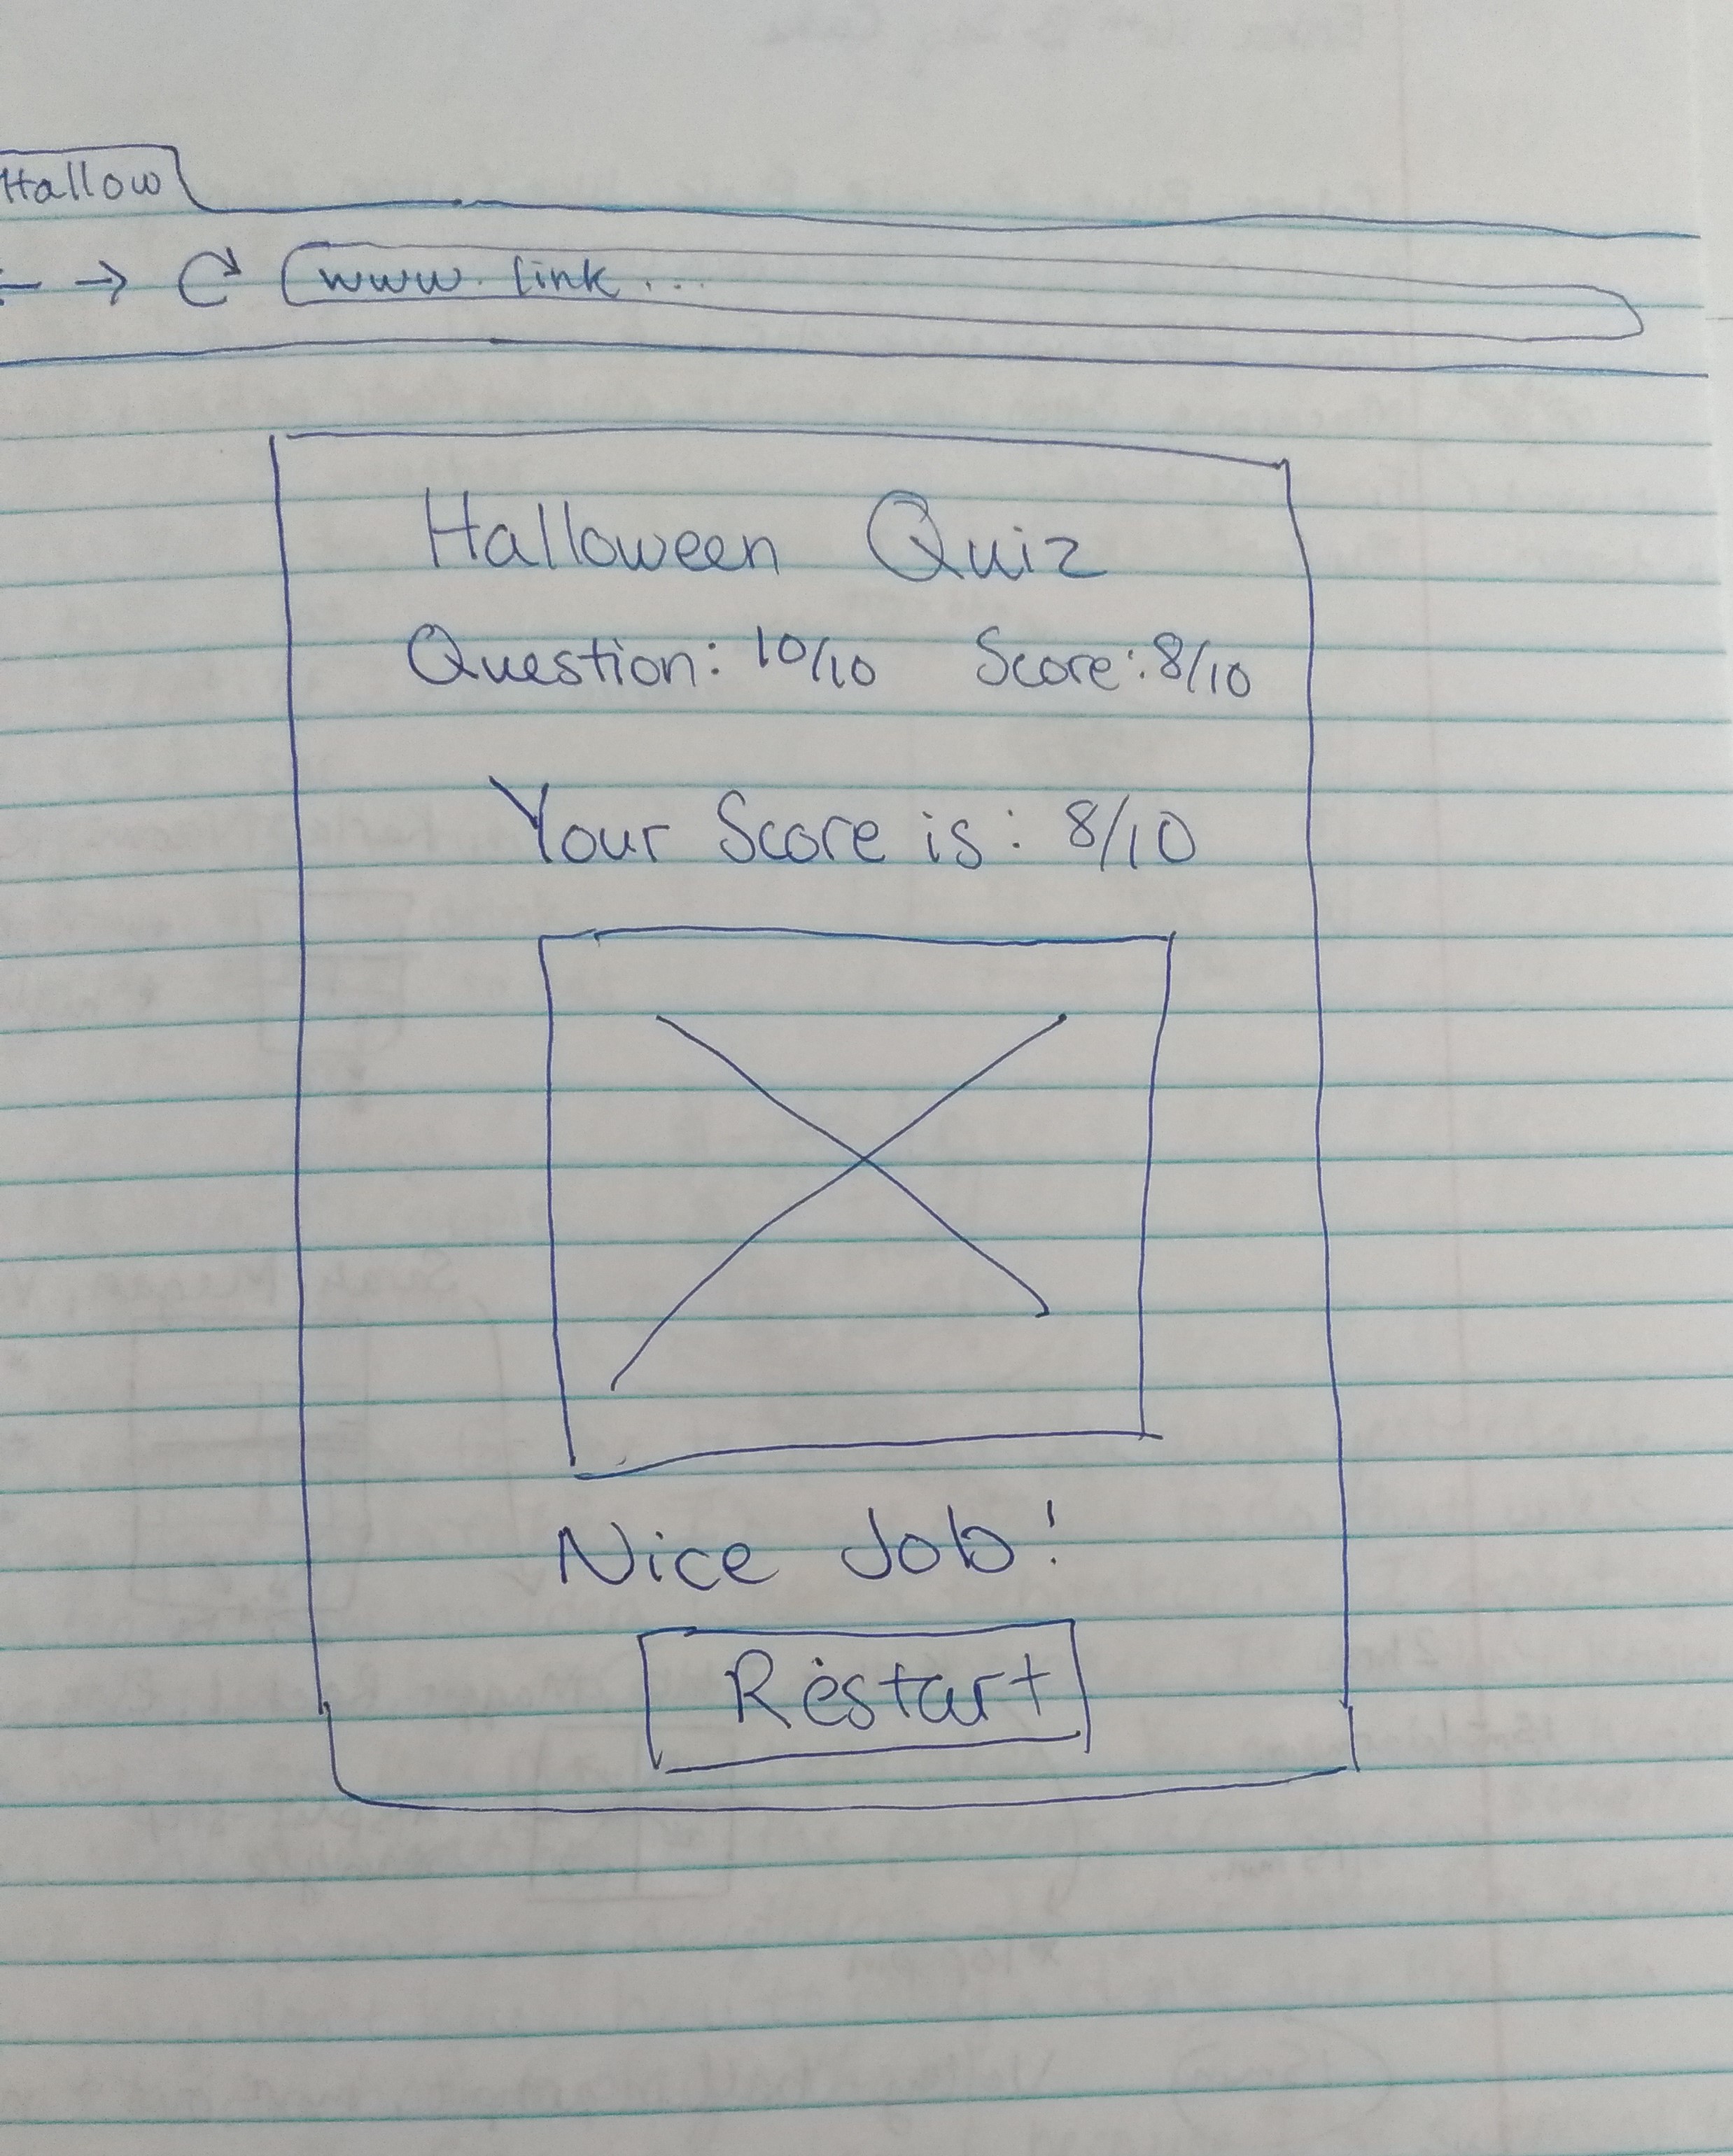 Hallow
www. link...
Halloween Quiz
Question: 10/10 Score: 8/10
Your Score is: 8/10
Nice Job!
Restart